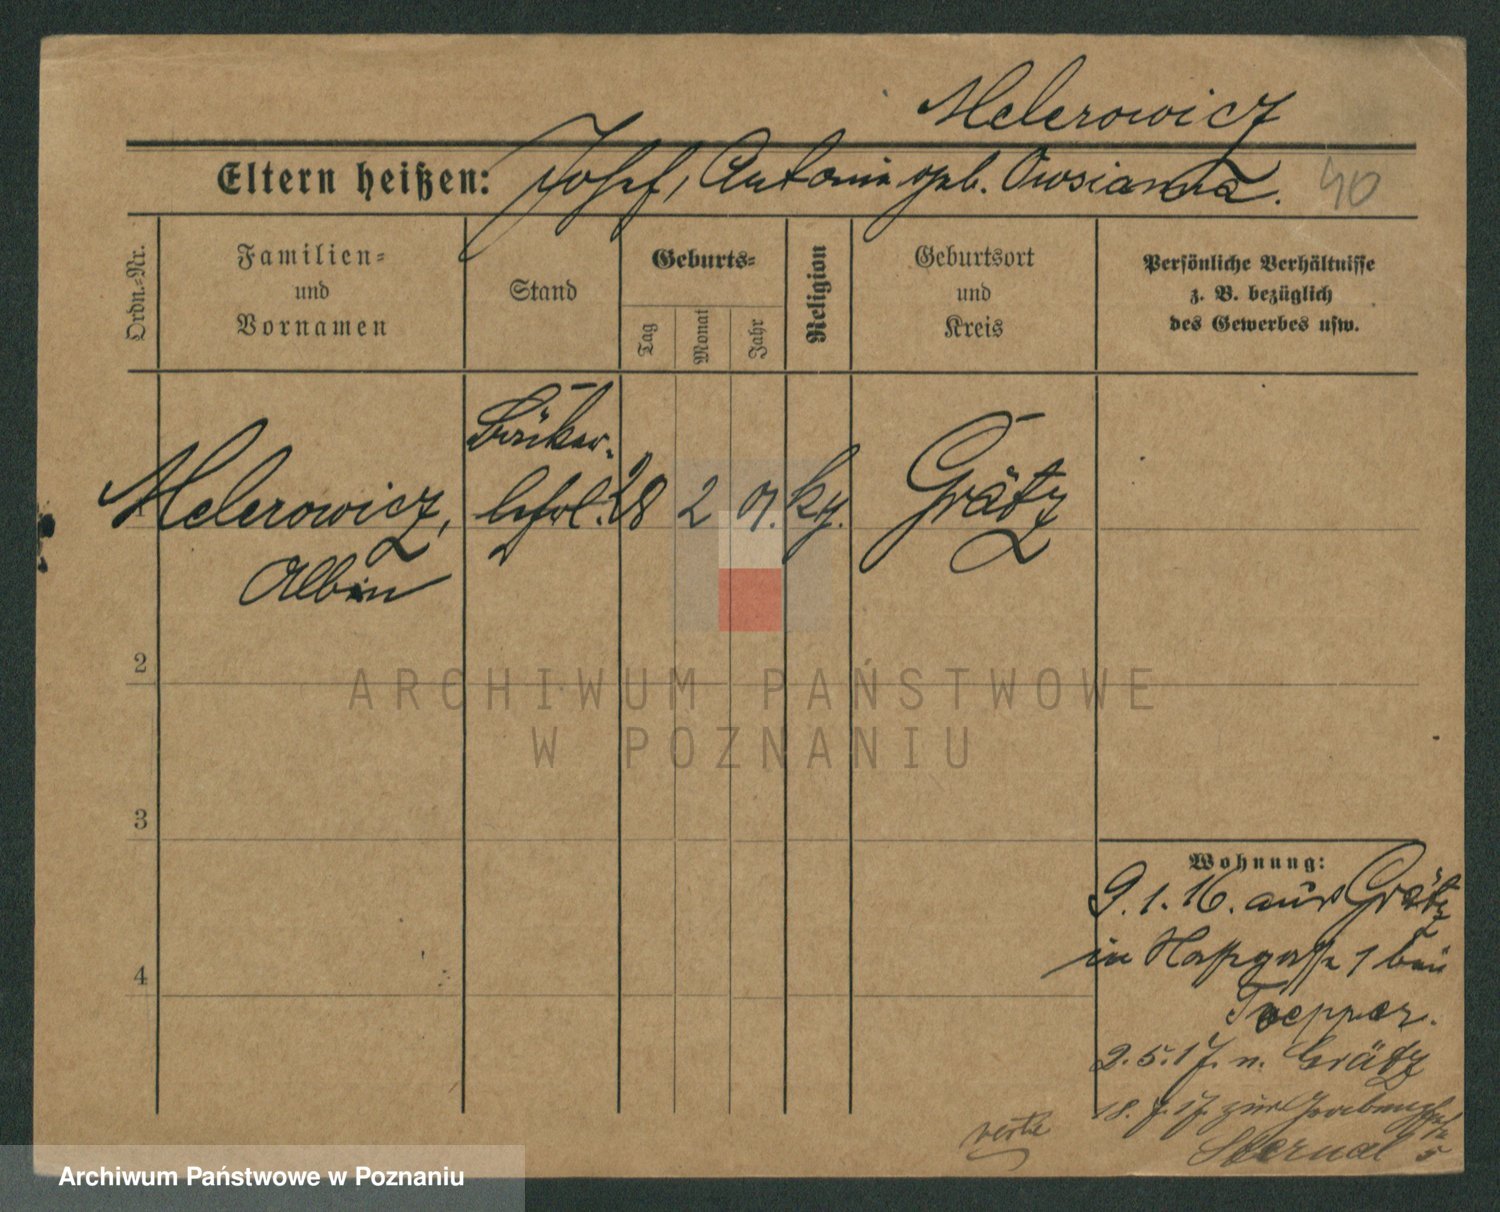 Melerowicz
Eltern heißen: Josef, Antonie geb. Owsianna.
40
Ordn.-Nr.
Familien-
und
Vornamen
Stand
Geburts-
Tag
Monat
Jahr
Religion
Geburtsort
und
Kreis
Persönliche Verhältnisse
z. B. bezüglich
des Gewerbes usw.
Melerowicz,
Albin
Bäcker-
28
2
kg.
Grätz
2
3
4
Wohnung:
9. 1. 16. aus Grätz
in 1 bei
Toepper.
2. 5. 17. n. Grätz
18. 7. 17. zur
verte
ARCHIWUM PAŃSTWOWE
W POZNANIU
Archiwum Państwowe w Poznaniu